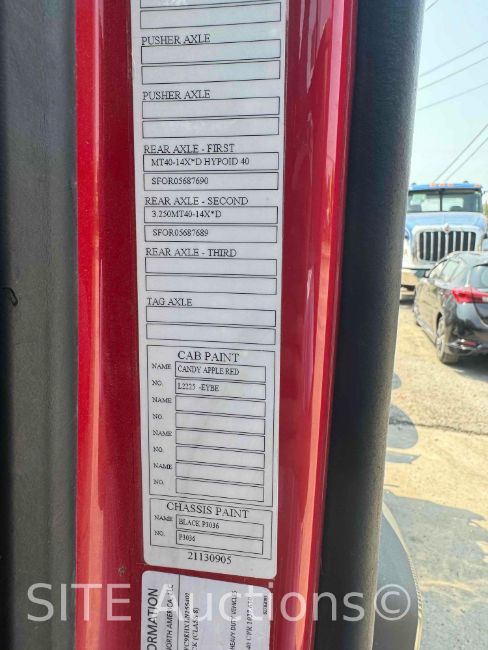 PUSHER AXLE
PUSHER AXLE
REAR AXLE - FIRST
MT40-14X*D HYPOID 40
SFOR05687690
REAR AXLE - SECOND
3.250MT40-14X*D
SFOR05687689
REAR AXLE - THIRD
TAG AXLE
CAB PAINT
NAME CANDY APPLE RED
NO. L2225 -EYBE
NAME
NO.
NAME
NO.
NAME
NO.
CHASSIS PAINT
NAME BLACK P3036
NO. P3036
21130905
NORTH AMERICA
HEAVY DUTY VEHICLES
SITE Auctions©